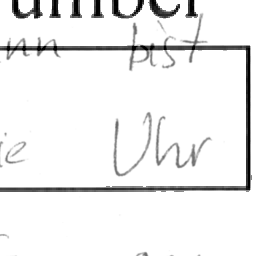 umber
nn bist
ie Uhr